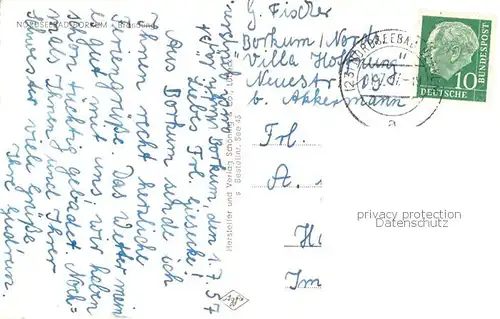 NORDSEEBAD BORKUM · Brandung
Borkum, den 1.7.57
Liebes Frl. Giesecke!
Aus Borkum sende ich
Ihnen recht herzliche
Feriengrüße. Das Wetter meint
es gut mit uns, wir haben
schon tüchtig gebadet. Noch-
mals Ihnen und Ihrer
Schwester viele Grüße
Ihre Gudrun.
Hersteller und Verlag Schöning & Co., Lübeck
Bestellnr. See 45
G. Fischer
Borkum / Nords
"Villa Hoffnung"
Neuestr
b. Akkermann
NORDSEEBAD
DEUTSCHE
BUNDESPOST
10
Frl.
A.
H
Im
privacy protection
Datenschutz